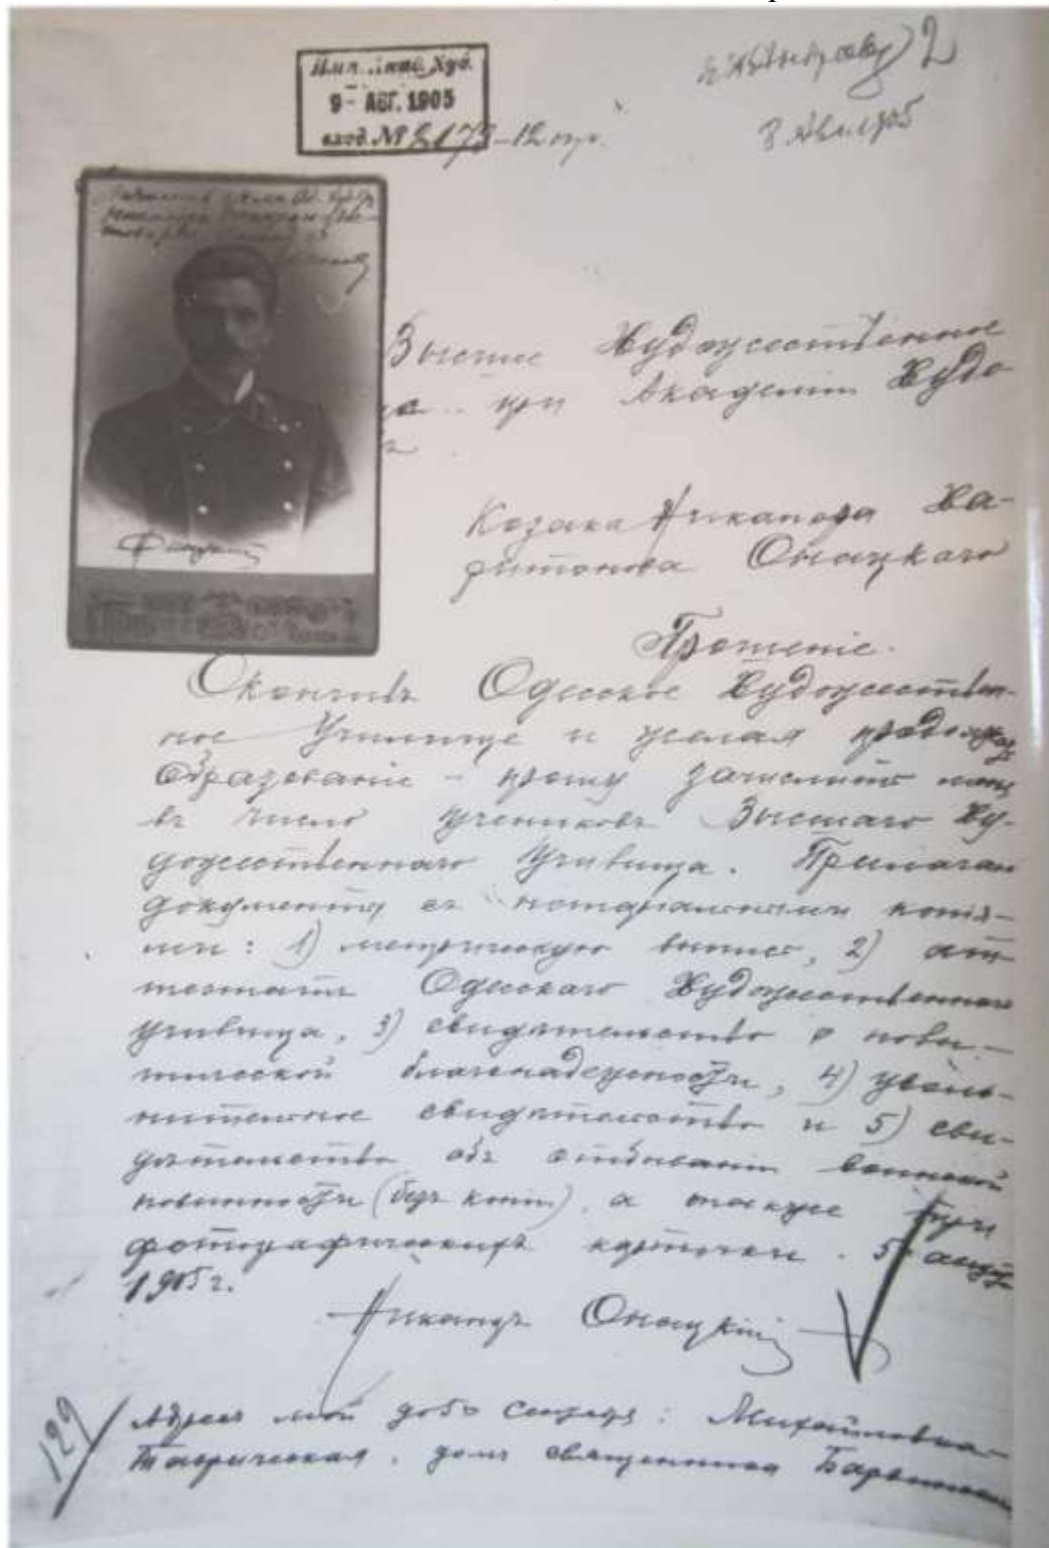 Имп. Акад. Худ.
9 - АВГ. 1905
вход. № 2173 - 12 апр.
2
8 Авг. 1905
Высшее Художественное
при Академіи Худо
Козака Никанора Ха-
ритонова Онацкаго
Прошеніе.
Окончивъ Одесское Художествен-
ное Училище и желая продолжать
образованіе - прошу зачислить меня
въ число учениковъ Высшаго Ху-
дожественнаго Училища. Прилагаю
документы съ нотаріальными копія-
ми: 1) метрическую выпись, 2) ат-
тестатъ Одесскаго Художественнаго
училища, 3) свидѣтельство о поли-
тической благонадежности, 4) уволь-
нительное свидѣтельство и 5) сви-
дѣтельство объ отбываніи воинской
повинности (безъ копіи), а также три
фотографическихъ карточки. 5 авгу
1905 г.
Никаноръ Онацкій
129
Адресъ мой до 5о Сентября: Михайловка-
Таврическая, домъ священника